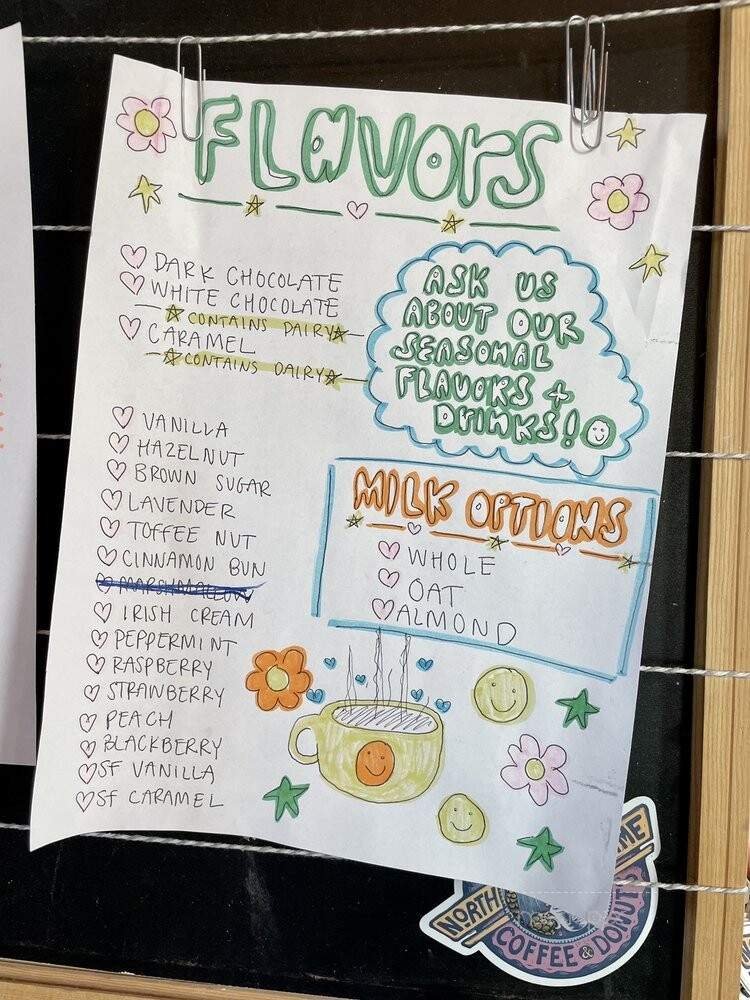 FLAVORS
DARK CHOCOLATE
WHITE CHOCOLATE
CONTAINS DAIRY
CARAMEL
CONTAINS DAIRY
ASK US
ABOUT OUR
SEASONAL
FLAVORS +
DRINKS!
VANILLA
HAZELNUT
BROWN SUGAR
LAVENDER
TOFFEE NUT
CINNAMON BUN
MARSHMALLOW
IRISH CREAM
PEPPERMINT
RASPBERRY
STRAWBERRY
PEACH
BLACKBERRY
SF VANILLA
SF CARAMEL
MILK OPTIONS
WHOLE
OAT
ALMOND
NORTH
COFFEE & DONUTS